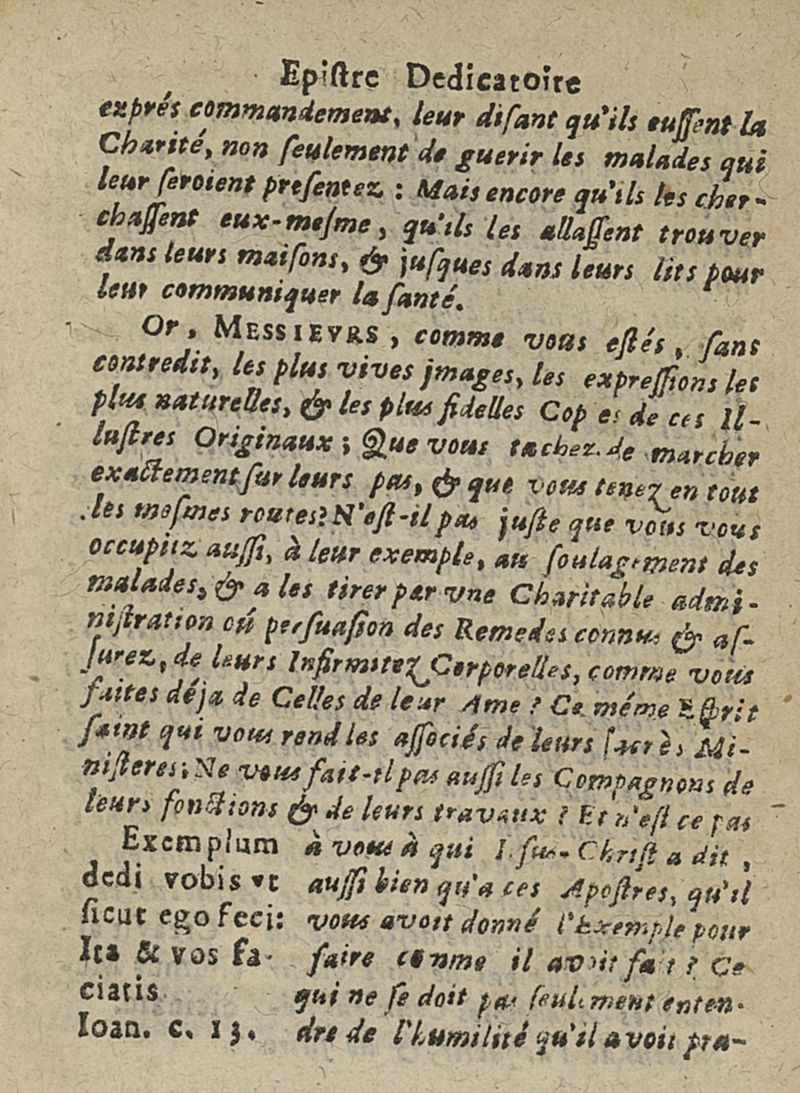 Epiſtre Dedicatoire
exprés commandement, leur diſant qu'ils euſſent la
Charité, non ſeulement de guerir les malades qui
leur ſeroient preſentez : Mais encore qu'ils les cher-
chaſſent eux-meſme, qu'ils les allaſſent trouver
dans leurs maiſons, & juſques dans leurs lits pour
leur communiquer la ſanté.
Or, MESSIEVRS, comme vous eſtés, ſans
contredit, les plus vives jmages, les expreſſions les
plus naturelles, & les plus fidelles Cop es de ces Il-
luſtres Originaux ; Que vous tachez de marcher
exactement ſur leurs pas, & que vous tenez en tout
les meſmes routes? N'eſt-il pas juſte que vous vous
occupiez auſſi, à leur exemple, au ſoulagement des
malades, & a les tirer par vne Charitable admi-
niſtration oú perſuaſion des Remedes connus & aſ-
ſurez, de leurs Infirmitez Corporelles, comme vous
faites déja de Celles de leur Ame ? Ce méme Eſprit
ſaint qui vous rend les aſſociés de leurs ſacrès Mi-
niſteres; Ne vous fait-il pas auſſi les Compagnons de
leurs fonctions & de leurs travaux ? Et n'eſt ce pas
à vous à qui Iſus-Chriſt a dit,
auſſi bien qu'a ces Apoſtres, qu'il
vous avoit donné l'Exemple pour
faire comme il avoit fait ? Ce
qui ne ſe doit pas ſeulement enten-
dre de l'humilité qu'il avoit pra-
Exemplum
dedi vobis vt
ſicut ego feci:
Ita & vos fa-
ciatis
Ioan. c. 13.